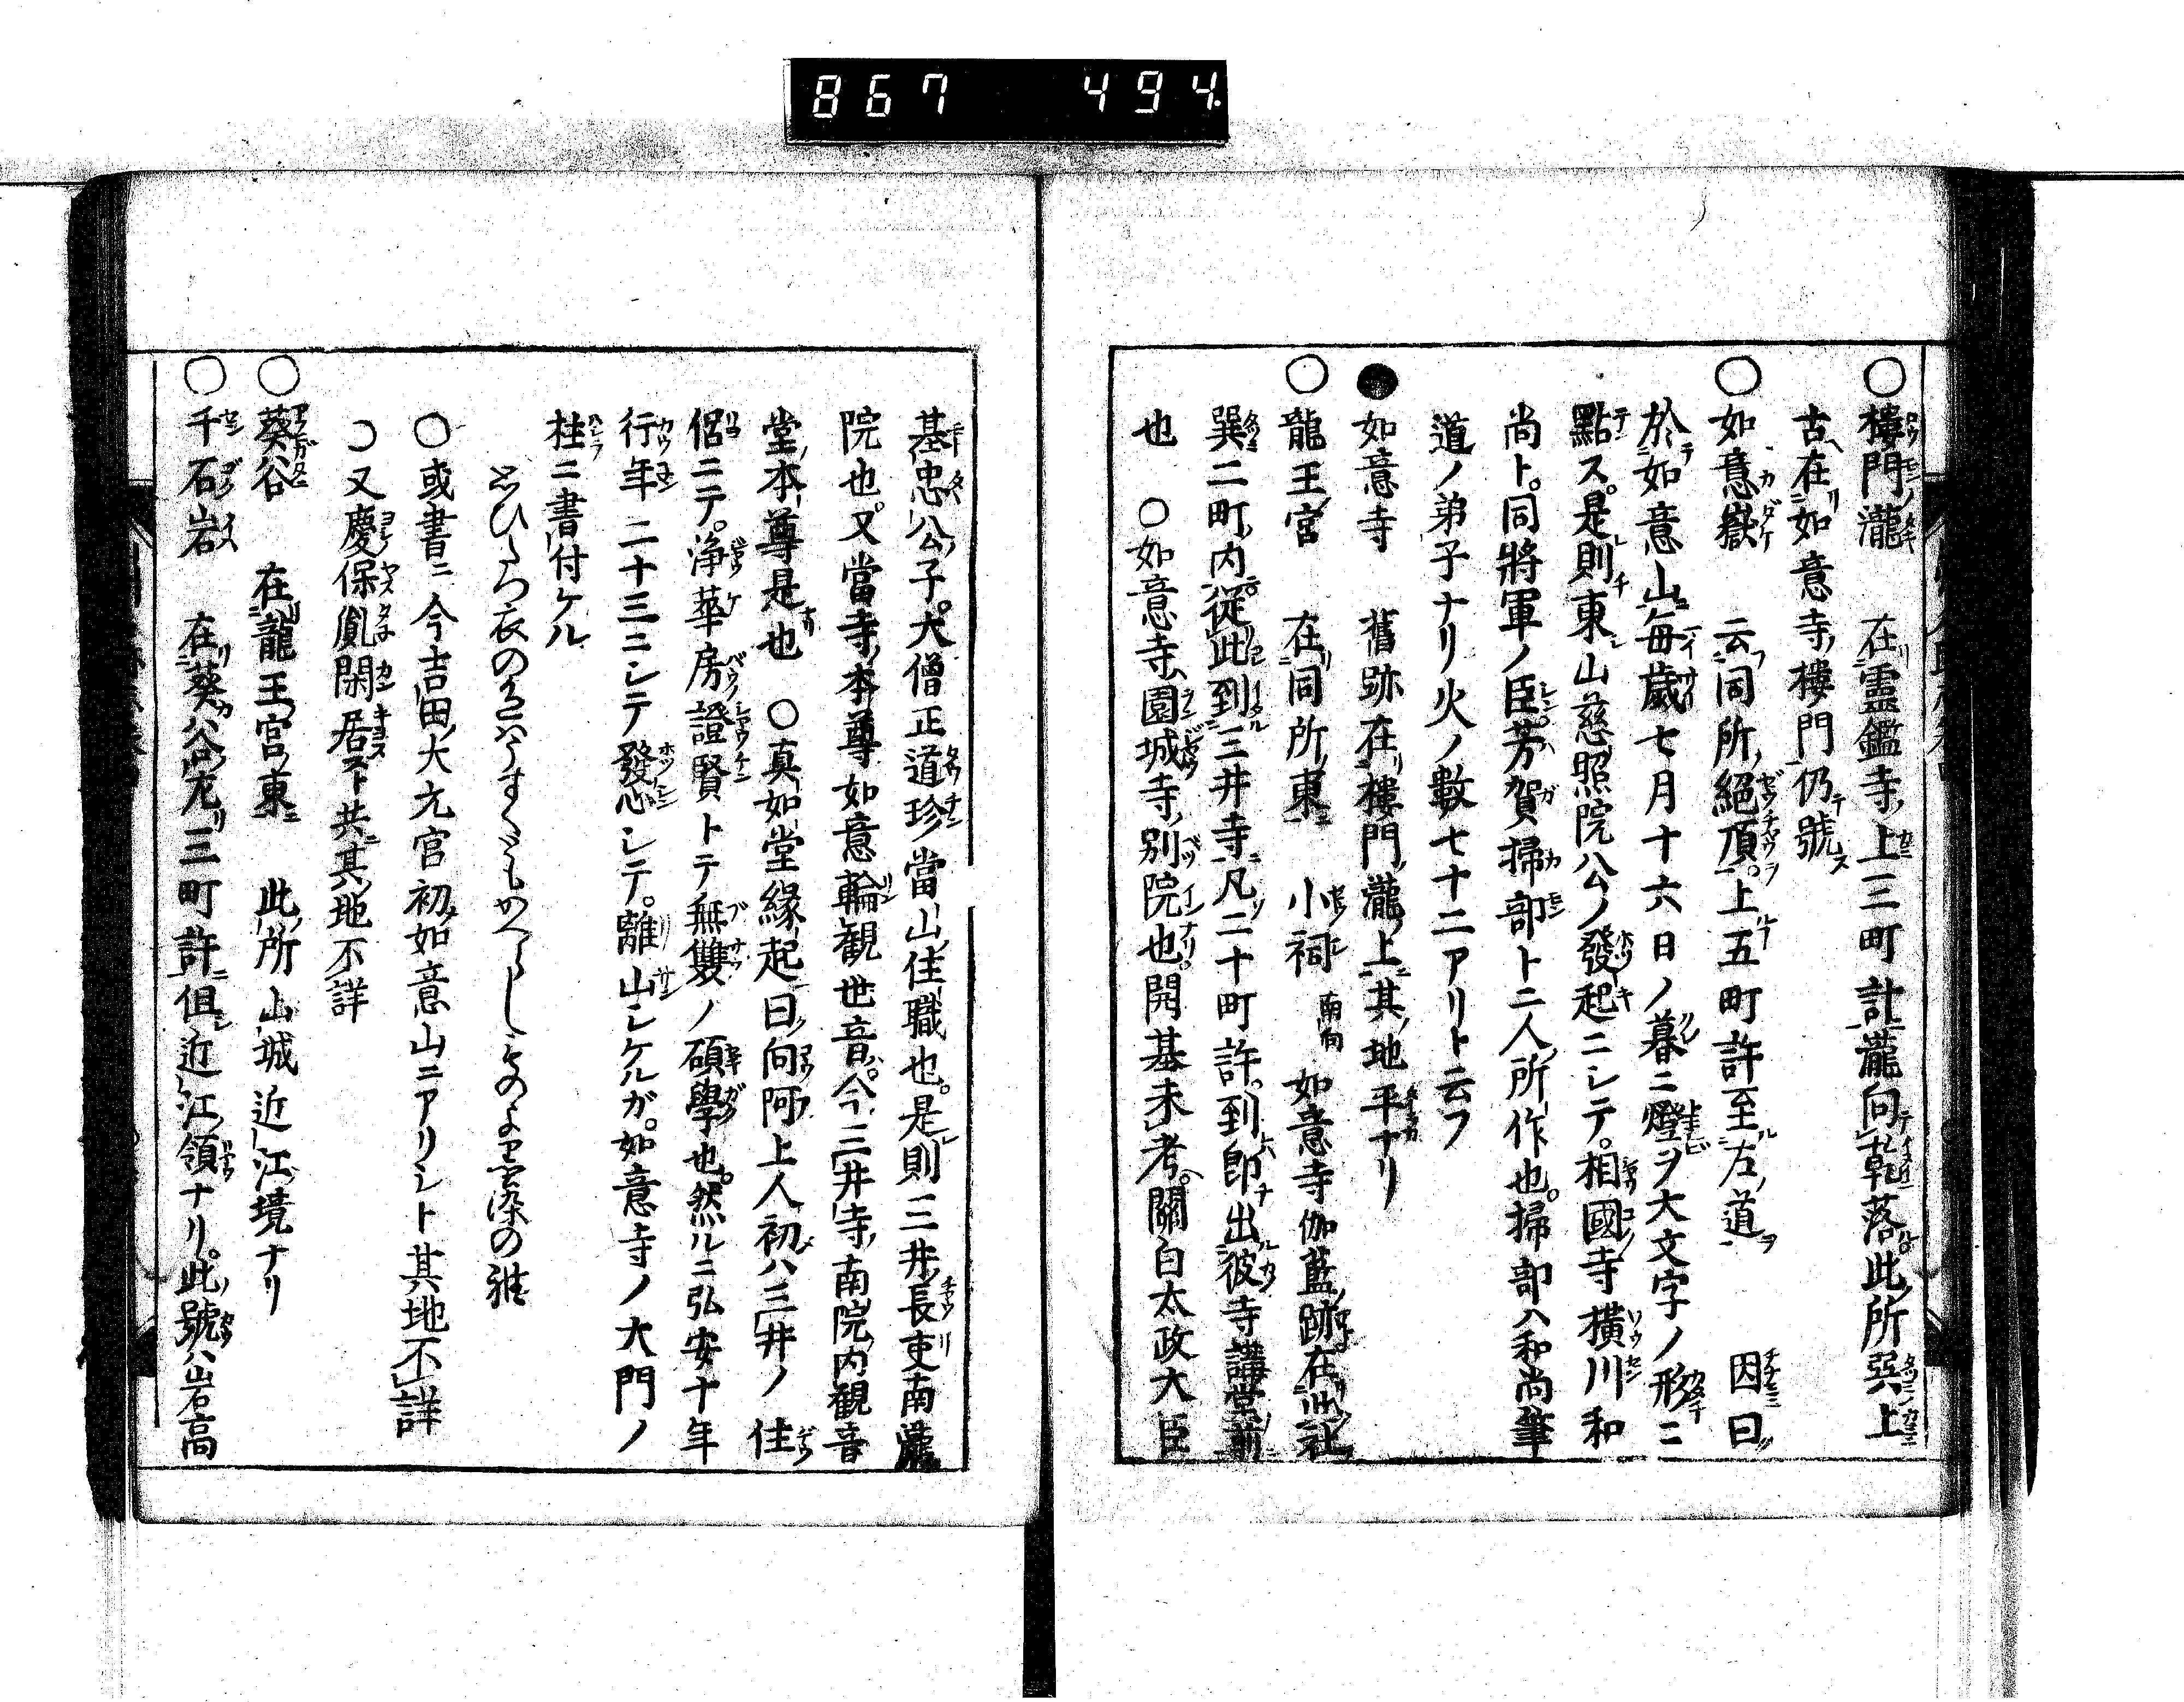 867 494
○樓門瀧 在靈鑑寺上三町計瀧向乾落此所巽上
古在如意寺樓門仍號
○如意嶽 云同所絕頂上五町許至左道 因曰
於如意山每歲七月十六日ノ暮ニ燈ヲ大文字ノ形ニ
點ス是則東山慈照院公ノ發起ニシテ相國寺橫川和
尚ト同將軍ノ臣芳賀掃部ト二人所作也掃部ハ和尚筆
道ノ弟子ナリ火ノ數七十二アリト云フ
●如意寺 舊跡在樓門瀧上其地平ナリ
○龍王宮 在同所東 小祠 南向 如意寺伽藍跡在此社
巽二町內從此到三井寺凡二十町許到即出彼寺講堂前
也 ○如意寺園城寺別院也開基未考關白太政大臣
基忠公子大僧正道珍當山住職也是則三井長吏南瀧
院也又當寺本尊如意輪観世音今三井寺南院內観音
堂本尊是也 ○真如堂緣起曰向阿上人初ハ三井ノ住
侶ニテ淨華房證賢トテ無雙ノ碩學也然ルニ弘安十年
行年二十三ニシテ發心シテ離山シケルガ如意寺ノ大門ノ
柱ニ書付ケル
○或書ニ今吉田大元宮初如意山ニアリシト其地不詳
○又慶保胤閑居スト共其地不詳
○葵谷 在龍王宮東 此所山城近江境ナリ
○千石岩 在葵谷尤三町許但近江領ナリ此號ハ岩高